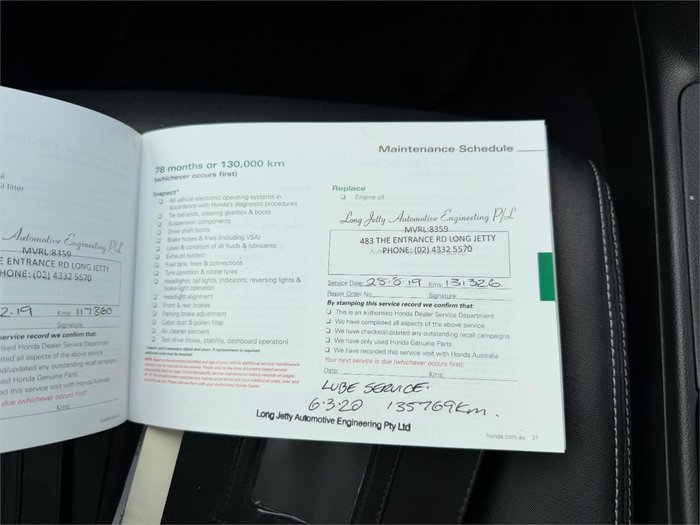 il
il filter
Automotive Engineering P/L
MVRL:8359
E ENTRANCE RD LONG JETTY
HONE: (02) 4332 5570
2.19 Kms 117360
Signature:
service record we confirm that:
ised Honda Dealer Service Department
eted all aspects of the above service
ed/updated any outstanding recall campaigns
sed Honda Genuine Parts
ed this service visit with Honda Australia
due (whichever occurs first):
Kms
honda.com.au
78 months or 130,000 km
(whichever occurs first)
Inspect*
All vehicle electronic operating systems in
accordance with Honda's diagnostic procedures
Tie rod ends, steering gearbox & boots
Suspension components
Drive shaft boots
Brake hoses & lines (including VSA)
Level & condition of all fluids & lubricants
Exhaust system
Fuel tank, lines & connections
Tyre condition & rotate tyres
Headlights, tail lights, indicators, reversing lights &
brake light operation
Headlights alignment
Front & rear brakes
Parking brake adjustment
Cabin dust & pollen filter
Air cleaner element
Test drive (noise, stability, dashboard operation)
Maintenance Schedule
Replace
Engine oil
Long Jetty Automotive Engineering P/L
MVRL:8359
483 THE ENTRANCE RD LONG JETTY
PHONE: (02) 4332 5570
Service Date: 28.8.19 Kms: 131326
Repair Order No: Signature:
By stamping this service record we confirm that:
This is an authorised Honda Dealer Service Department
We have completed all aspects of the above service
We have checked/updated any outstanding recall campaigns
We have only used Honda Genuine Parts
We have recorded this service visit with Honda Australia
Your next service is due (whichever occurs first):
Date: Kms:
LUBE SERVICE.
6.3.20 135769Km.
Long Jetty Automotive Engineering Pty Ltd
honda.com.au 31